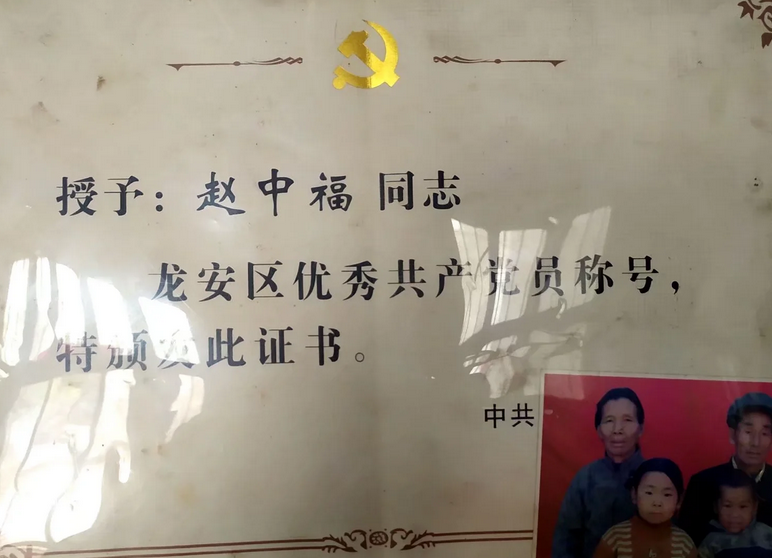 授予：赵中福 同志
龙安区优秀共产党员称号，
特颁发此证书。
中共